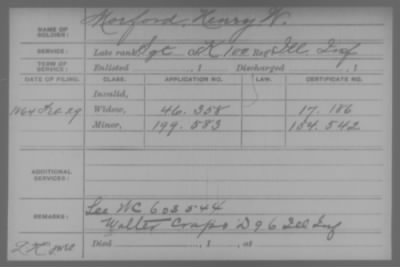 NAME OF SOLDIER: Morford, Henry W.
SERVICE: Late rank Sgt Co K 102 Reg't Ill Inf
TERM OF SERVICE: Enlisted , 1 Discharged , 1
DATE OF FILING. CLASS. APPLICATION NO. LAW. CERTIFICATE NO.
Invalid,
1864 Feb. 29 Widow, 46.358 17.186
Minor, 199.583 154.542
ADDITIONAL SERVICES:
REMARKS: See WC 603544
Walter Crapo D 96 Ill Inf
Died , 1 , at